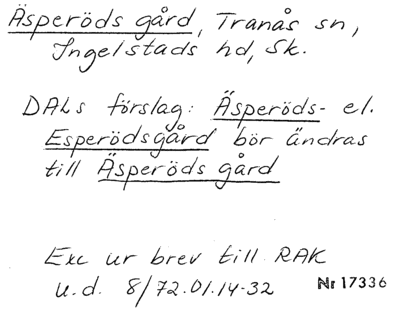 Äsperöds gård, Tranås sn,
Ingelstads hd, Sk.
DALs förslag: Äsperöds- el.
Esperödsgård bör ändras
till Äsperöds gård
Exc ur brev till RAK
u.d. 8/72.01.14-32 Nr 17336